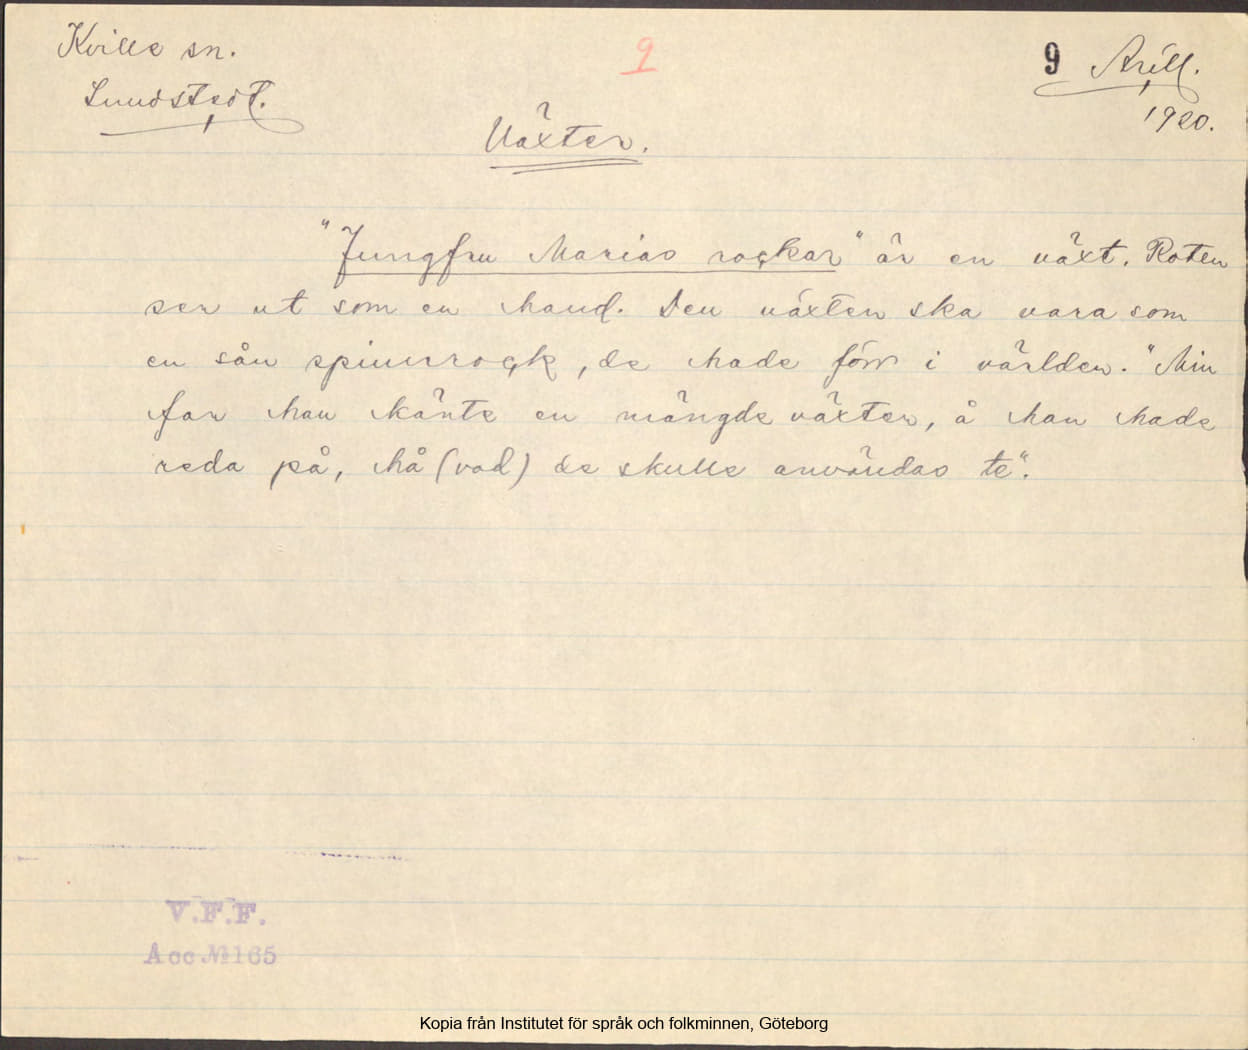 Kville sn.
Lundstedt.
9
9 Arill.
1920.
Växter.
"Jungfru Marias rockar" är en växt. Roten
ser ut som en hand. Den växten ska vara som
en sån spinnrock, de hade förr i världen. "Min
far han känte en mängde växter, å han hade
reda på, hå (vad) de skulle användas te".
V.F.F.
Acc. № 165
Kopia från Institutet för språk och folkminnen, Göteborg